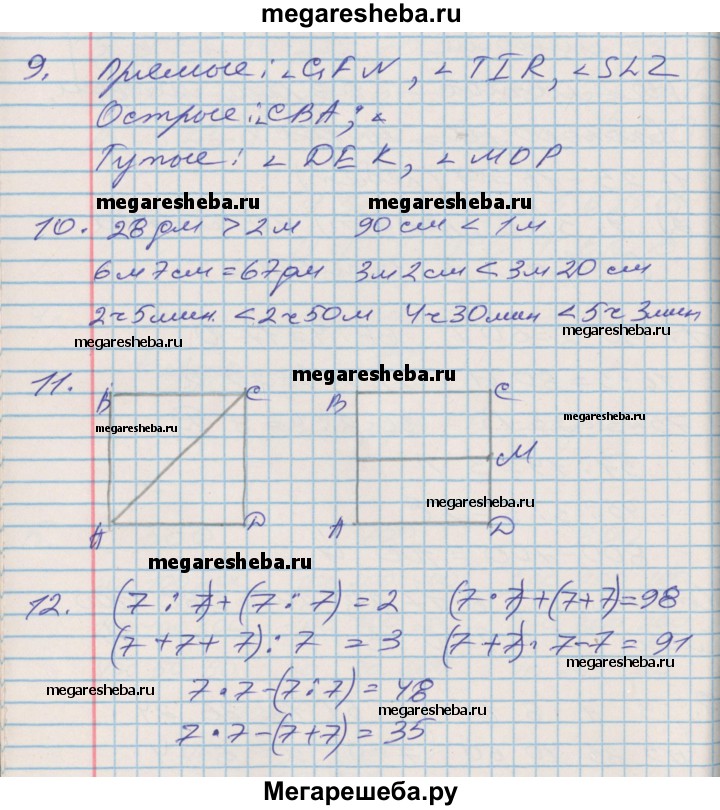 megaresheba.ru
9. Прямые: ∠GFN, ∠TIR, ∠SLZ
Острые: ∠CBA; ∠
Тупые: ∠DEK, ∠MOP
megaresheba.ru megaresheba.ru
10. 28 дм > 2 м 90 см < 1 м
6 м 7 см = 67 дм 3 м 2 см < 3 м 20 см
2 ч 5 мин. < 2 ч 50 м 4 ч 30 мин < 5 ч 3 мин
megaresheba.ru megaresheba.ru
megaresheba.ru
11. B C B C
megaresheba.ru megaresheba.ru
M
megaresheba.ru
A D A D
megaresheba.ru
12. (7 : 7) + (7 : 7) = 2 (7 · 7) + (7+7) = 98
(7 + 7 + 7) : 7 = 3 (7 + 7) · 7 - 7 = 91
megaresheba.ru
megaresheba.ru 7 · 7 - (7 : 7) = 48
megaresheba.ru
7 · 7 - (7 + 7) = 35
Мегарешеба.ру